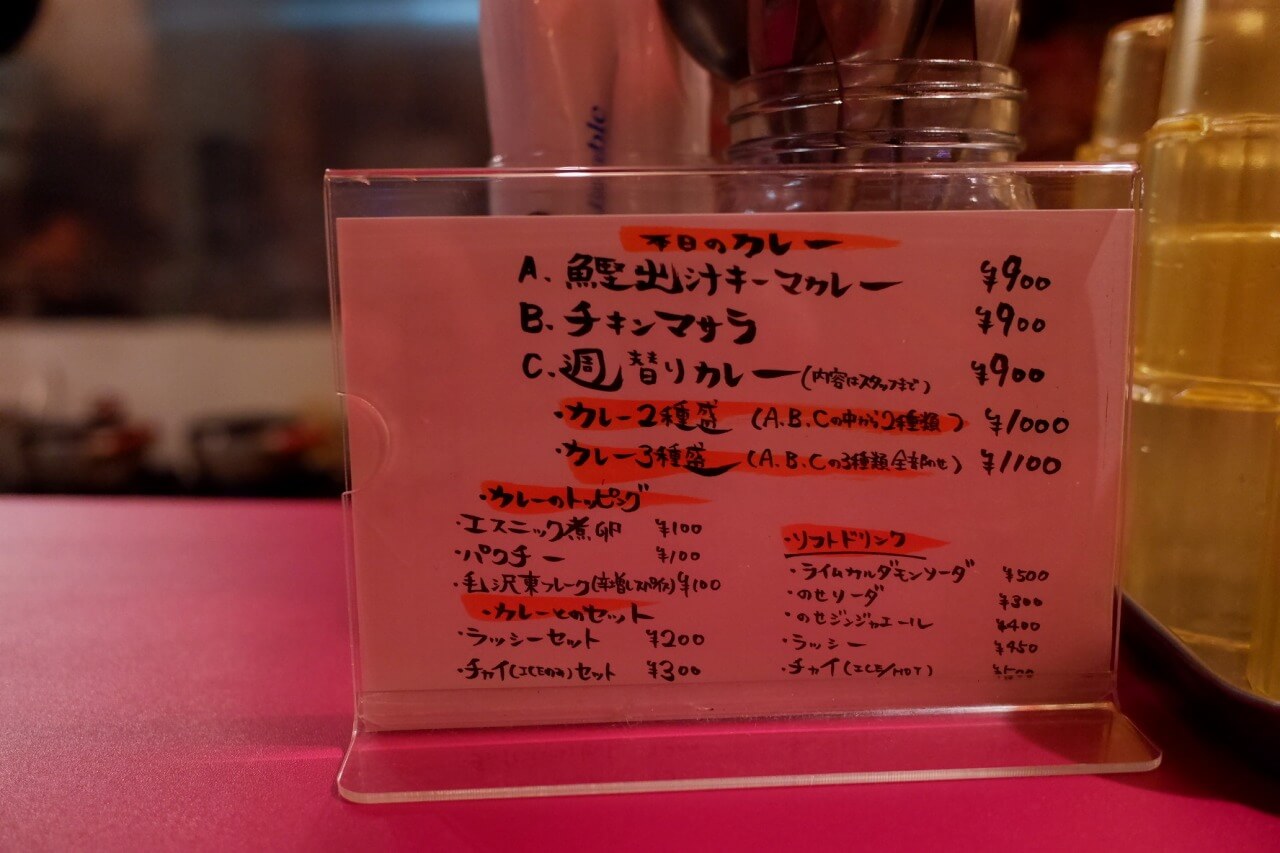 本日のカレー
A. 鰹出汁キーマカレー ¥900
B. チキンマサラ ¥900
C. 週替りカレー(内容はスタッフまで) ¥900
・カレー2種盛 (A.B.Cの中から2種類) ¥1000
・カレー3種盛 (A.B.Cの3種類全部のせ) ¥1100
・カレーのトッピング
・エスニック煮卵 ¥100
・パクチー ¥100
・毛沢東フレーク(辛増しスパイス) ¥100
・カレーとのセット
・ラッシーセット ¥200
・チャイ(ICEのみ)セット ¥300
・ソフトドリンク
・ライムカルダモンソーダ ¥500
・のせソーダ ¥300
・のせジンジャエール ¥400
・ラッシー ¥450
・チャイ(ICE/HOT)